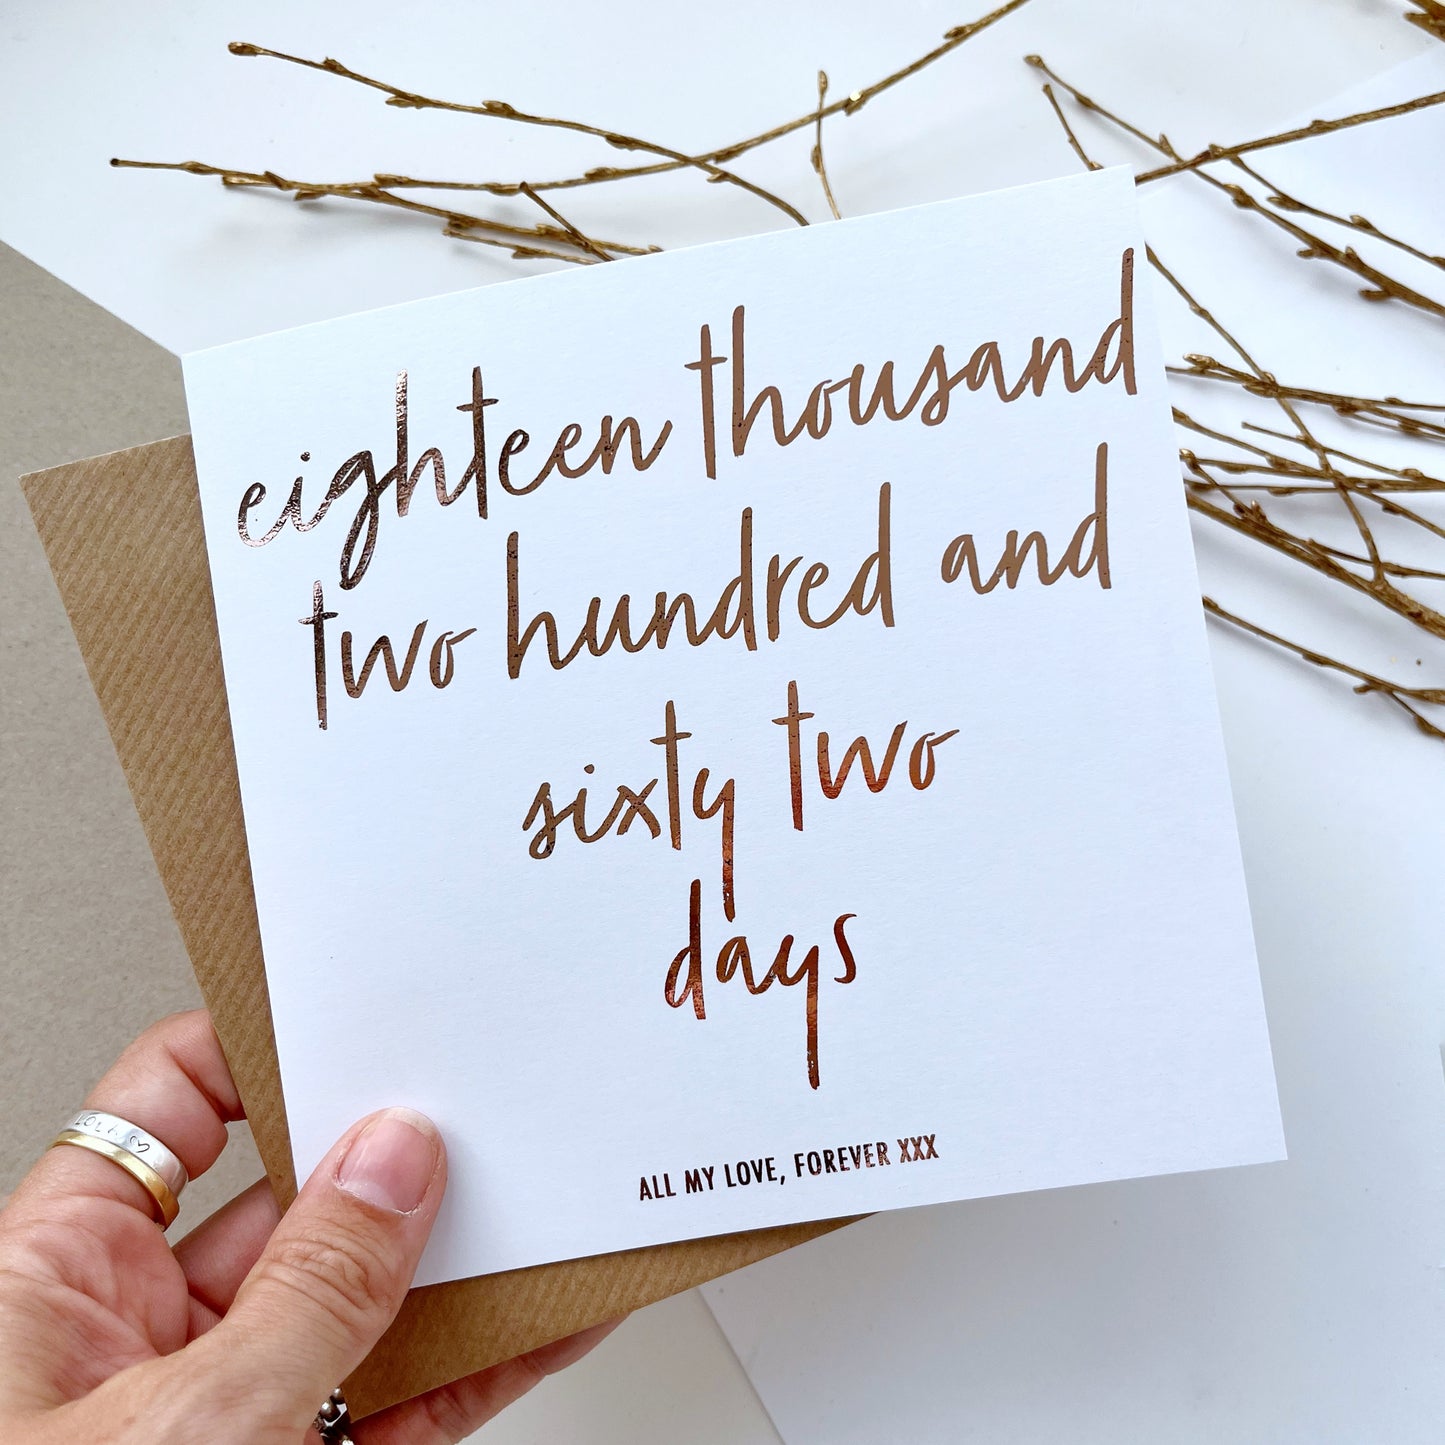 eighteen thousand
two hundred and
sixty two
days
ALL MY LOVE, FOREVER XXX
LOLA ♡